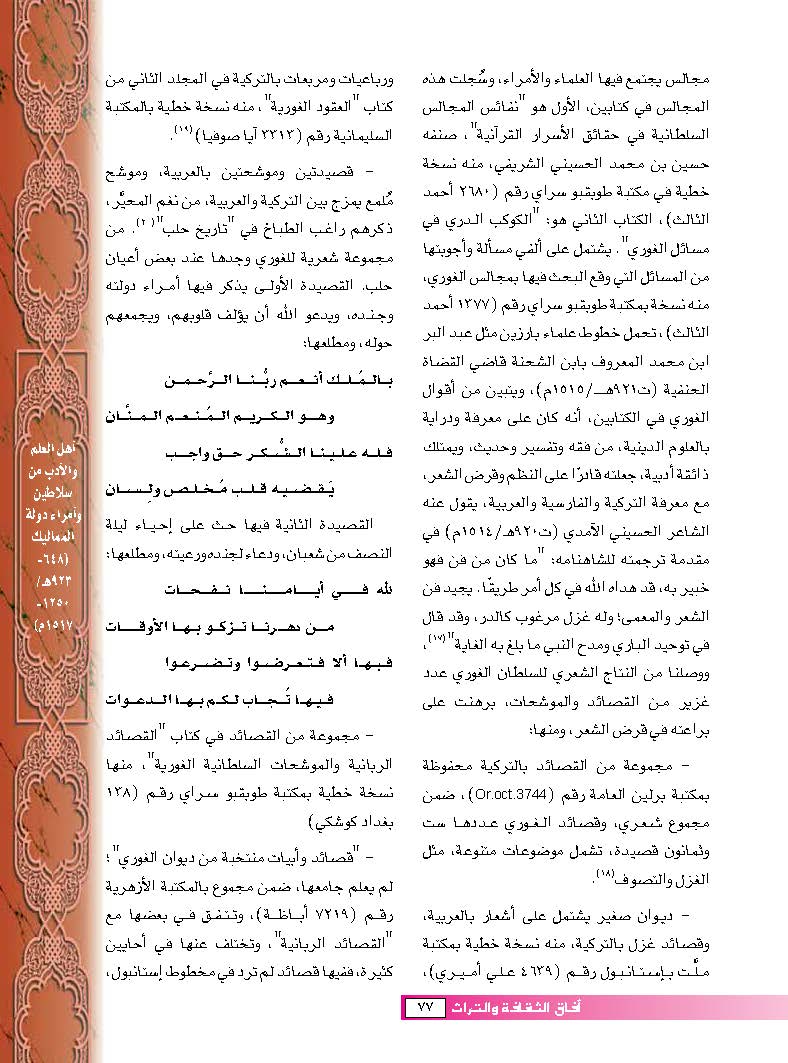 مجالس يجتمع فيها العلماء والأمراء، وسُجلت هذه
المجالس في كتابين، الأول هو "نفائس المجالس
السلطانية في حقائق الأسرار القرآنية"، صنفه
حسين بن محمد الحسيني الشريفي، منه نسخة
خطية في مكتبة طوبقبو سراي رقم (٢٦٨٠ أحمد
الثالث)، الكتاب الثاني هو: "الكوكب الدري في
مسائل الغوري". يشتمل على ألفي مسألة وأجوبتها
من المسائل التي وقع البحث فيها بمجالس الغوري،
منه نسخة بمكتبة طوبقبو سراي رقم (١٣٧٧ أحمد
الثالث)، تحمل خطوط علماء بارزين مثل عبد البر
ابن محمد المعروف بابن الشحنة قاضي القضاة
الحنفية (ت٩٢١هـ/١٥١٥م)، ويتبين من أقوال
الغوري في الكتابين، أنه كان على معرفة ودراية
بالعلوم الدينية، من فقه وتفسير وحديث، ويمتلك
ذائقة أدبية، جعلته قادرًا على النظم وقرض الشعر،
مع معرفة التركية والفارسية والعربية، يقول عنه
الشاعر الحسيني الآمدي (ت٩٢٠هـ/١٥١٤م) في
مقدمة ترجمته للشاهنامه: "ما كان من فن فهو
خبير به، قد هداه الله في كل أمر طريقًا. يجيد فن
الشعر والمعمى؛ وله غزل مرغوب كالدر، وقد قال
في توحيد الباري ومدح النبي ما بلغ به الغاية"(١٧)،
ووصلنا من النتاج الشعري للسلطان الغوري عدد
غزير من القصائد والموشحات، برهنت على
براعته في قرض الشعر، ومنها:
- مجموعة من القصائد بالتركية محفوظة
بمكتبة برلين العامة رقم (Or.oct.3744)، ضمن
مجموع شعري، وقصائد الغوري عددها ست
وثمانون قصيدة، تشمل موضوعات متنوعة، مثل
الغزل والتصوف(١٨).
- ديوان صغير يشتمل على أشعار بالعربية،
وقصائد غزل بالتركية، منه نسخة خطية بمكتبة
ملَّت بإستانبول رقم (٤٦٣٩ علي أميري)،
ورباعيات ومربعات بالتركية في المجلد الثاني من
كتاب "العقود الغورية"، منه نسخة خطية بالمكتبة
السليمانية رقم (٣٣١٣ آيا صوفيا)(١٩).
- قصيدتين وموشحتين بالعربية، وموشح
مُلمع يمزج بين التركية والعربية، من نغم المحيَّر،
ذكرهم راغب الطباخ في "تاريخ حلب"(٢٠). من
مجموعة شعرية للغوري وجدها عند بعض أعيان
حلب. القصيدة الأولى يذكر فيها أمراء دولته
وجنده، ويدعو الله أن يؤلف قلوبهم، ويجمعهم
حوله، ومطلعها:
بالمُلك أنعم ربُّنا الرَّحمن
وهو الكريم المُنعم المنَّان
فله علينا الشُّكر حق واجب
يَقضيه قلب مُخلص ولِسان
القصيدة الثانية فيها حث على إحياء ليلة
النصف من شعبان، ودعاء لجنده ورعيته، ومطلعها:
لله في أيامنا نفحات
من دهرنا تزكو بها الأوقات
فيها ألا فتعرضوا وتضرعوا
فيها تُجاب لكم بها الدعوات
- مجموعة من القصائد في كتاب "القصائد
الربانية والموشحات السلطانية الغورية"، منها
نسخة خطية بمكتبة طوبقبو سراي رقم (١٣٨
بغداد كوشكي)
- "قصائد وأبيات منتخبة من ديوان الغوري"؛
لم يعلم جامعها، ضمن مجموع بالمكتبة الأزهرية
رقم (٧٢١٩ أباظة)، وتتفق في بعضها مع
"القصائد الربانية"، وتختلف عنها في أحايين
كثيرة، ففيها قصائد لم ترد في مخطوط إستانبول،
أهل العلم
والأدب من
سلاطين
وأمراء دولة
المماليك
(٦٤٨-
٩٢٣هـ/
١٢٥٠-
١٥١٧م)
آفاق الثقافة والتراث ٧٧